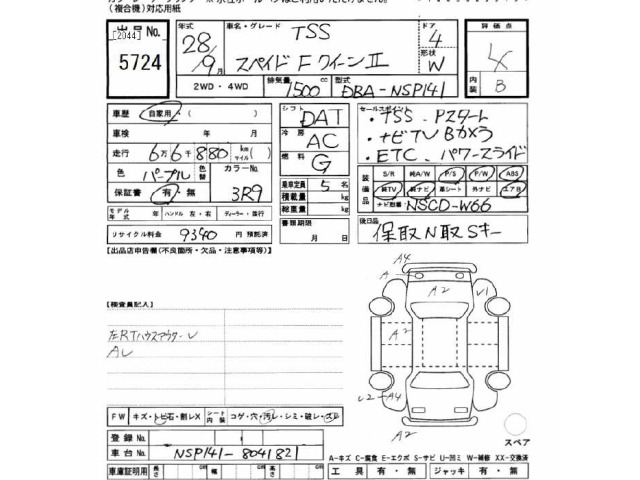 (複合機)対応用紙
出品 No.
[2044]
5724
28年
9月
車名・グレード TSS
スペイド F クイーンⅡ
ドア 4
形状 W
評価点 4
内装 B
2WD・4WD
排気量 1500 cc
型式 DBA-NSP141
車歴 自家用・( )
車検 年 月
走行 6万6千880 km マイル( )
色 パープル
色替
カラーNo. 3R9
保証書 有・無
モデル年式 年 ハンドル 左・右 ディーラー・並行
リサイクル料金 9340 円 預託済
シフト DAT
冷房 AC
燃料 G
乗車定員 5 名
積載量 kg
総重量 kg
書類期限
月 日
セールスポイント
・TSS . Pスタート
・ナビTV Bカメラ
・ETC . パワースライド
装備品
S/R 純A/W P/S P/W ABS
純TV 純ナビ 革シート 外ナビ エアB
ナビ型番 NSCD-W66
後日品
保取N取Sキー
[出品店申告欄(不良箇所・欠品・注意事項等)]
[検査員記入]
左RTハウスアウターU
AU
FW キズ・トビ石・割レX
シート内装 コゲ・穴・汚レ・シミ・破レ・スレ
登録 No.
車台 No. NSP141-8041821
車庫証明用 長さ cm 幅 cm 高さ cm
A4
A
A2
U1
A2
A2
U2-A4
A2
スペア
A-キズ C-腐食 E-エクボ S-サビ U-凹ミ W-補修 XX-交換済
工具 有・無 ジャッキ 有・無